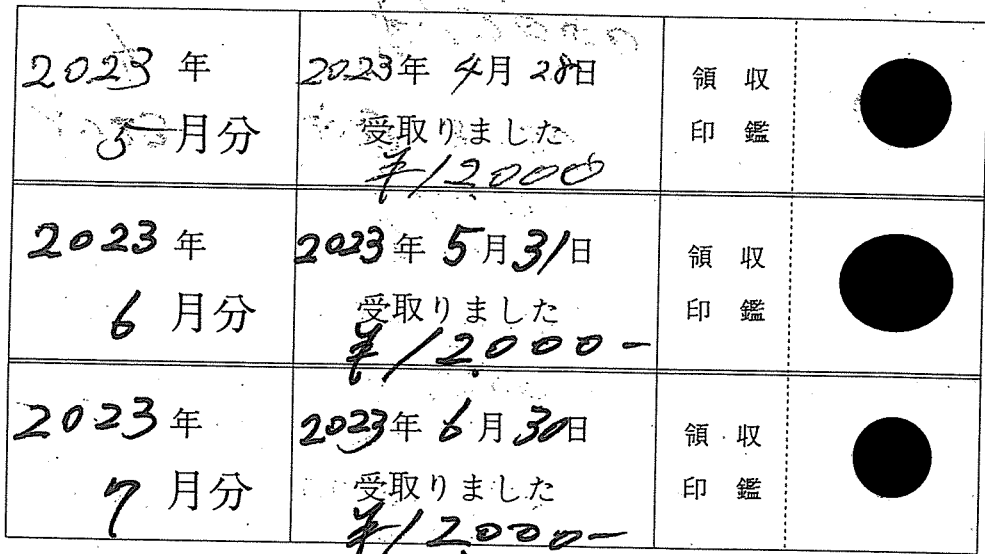 2023年
5月分
2023年 4月 28日
受取りました
¥12000
領 収
印 鑑
2023年
6月分
2023年 5月31日
受取りました
¥12.000-
領 収
印 鑑
2023年
7月分
2023年 6月30日
受取りました
¥12.000-
領 収
印 鑑